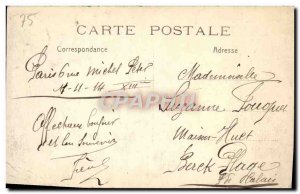 75
CARTE POSTALE
Correspondance
Adresse
Paris 6 rue Michel Peter
18-11-14 XIII
Affectueux bonjour
et bon souvenir
Mademoiselle
Suzanne Fouques
Maison Huet
Berck Plage
Pas de Calais